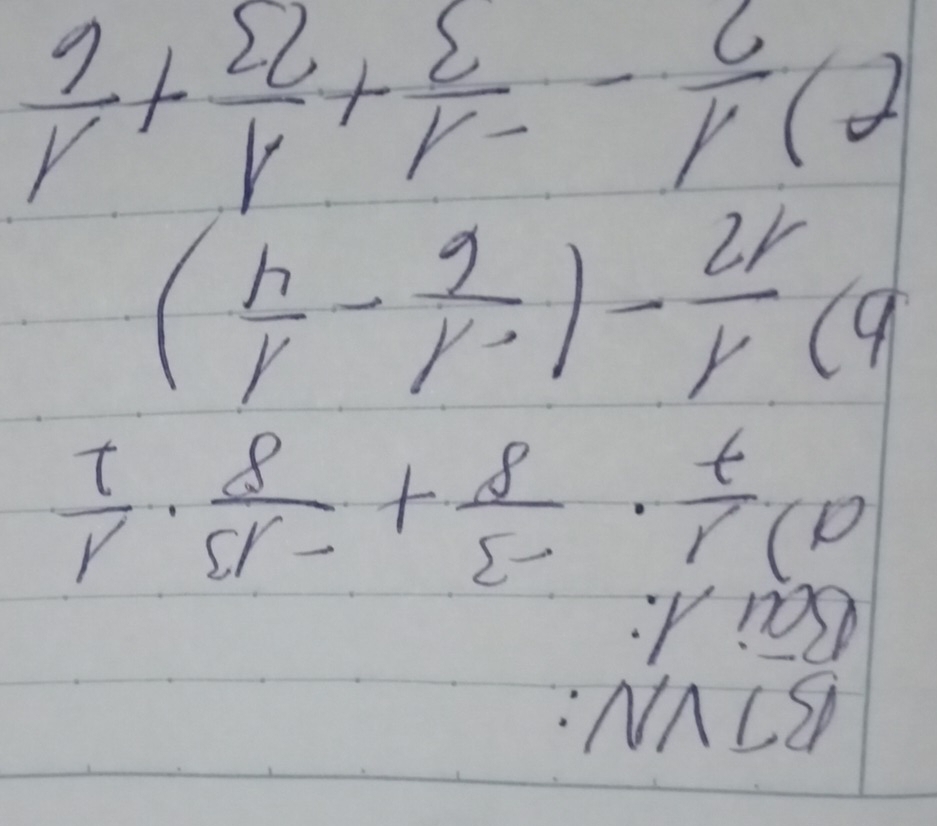 BTVN:
Bài 1:
a) 1/7 . -3/8 + -13/8 . 1/7
b) 1/12 - (-1/6 - 1/4)
c) 1/2 - -1/3 + 1/23 + 1/6